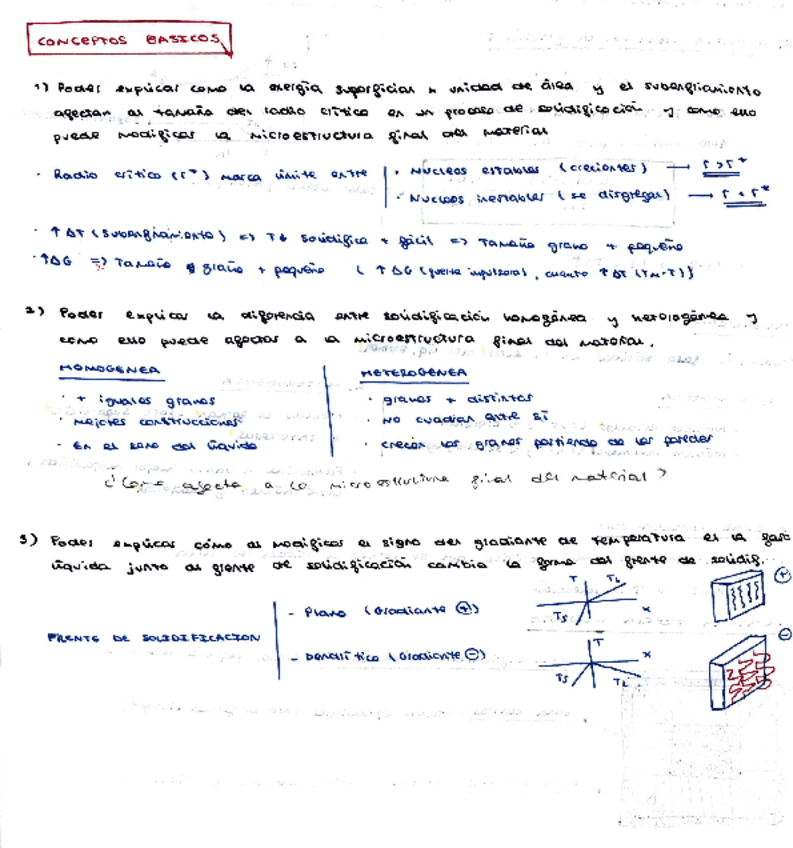 CONCEPTOS BASICOS
1) Poder explicar como la energía superficial x unidad de área y el subenfriamiento
afectan al tamaño del radio crítico en un proceso de solidificación y como ello
puede modificar la microestructura final del material
· Radio crítico (r*) marca límite entre
· Nucleos estables (crecientes) → r > r*
· Nucleos inestables (se disgregan) → r < r*
· ↑ ΔT (subenfriamiento) => T↓ solidifica + fácil => Tamaño grano + pequeño
· ↑ΔG => Tamaño graño + pequeño (↑ΔG (fuerza impulsora), cuanto ↑ΔT (Tm-T))
2) Poder explicar la diferencia entre solidificación homogénea y heterogénea y
como ello puede afectar a la microestructura final del material.
HOMOGENEA
· + iguales granos
· mejores construcciones
· En el seno del líquido
HETEROGENEA
· granos + distintos
· NO cuadran entre sí
· crecen los granos partiendo de las paredes
¿Como afecta a la microestructura final del material?
3) Poder explicar cómo al modificar el signo del gradiente de temperatura el la fase
líquida junto al frente de solidificación cambia la forma del frente de solidif.
FRENTE DE SOLIDIFICACION
- Plano (Gradiente +)
- Dendrítico (Gradiente -)
T TL
TS x
+
T x
TS TL
-